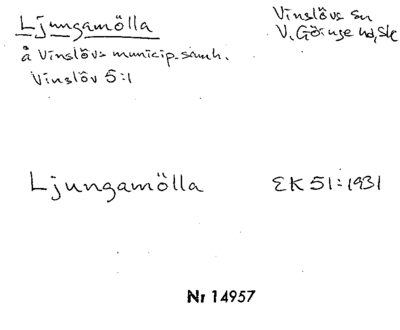 Ljungamölla
Vinslövs sn
V. Göinge hd, Sk
å Vinslövs municip. samh.
Vinslöv 5:1
Ljungamölla
EK 51:1931
Nr 14957